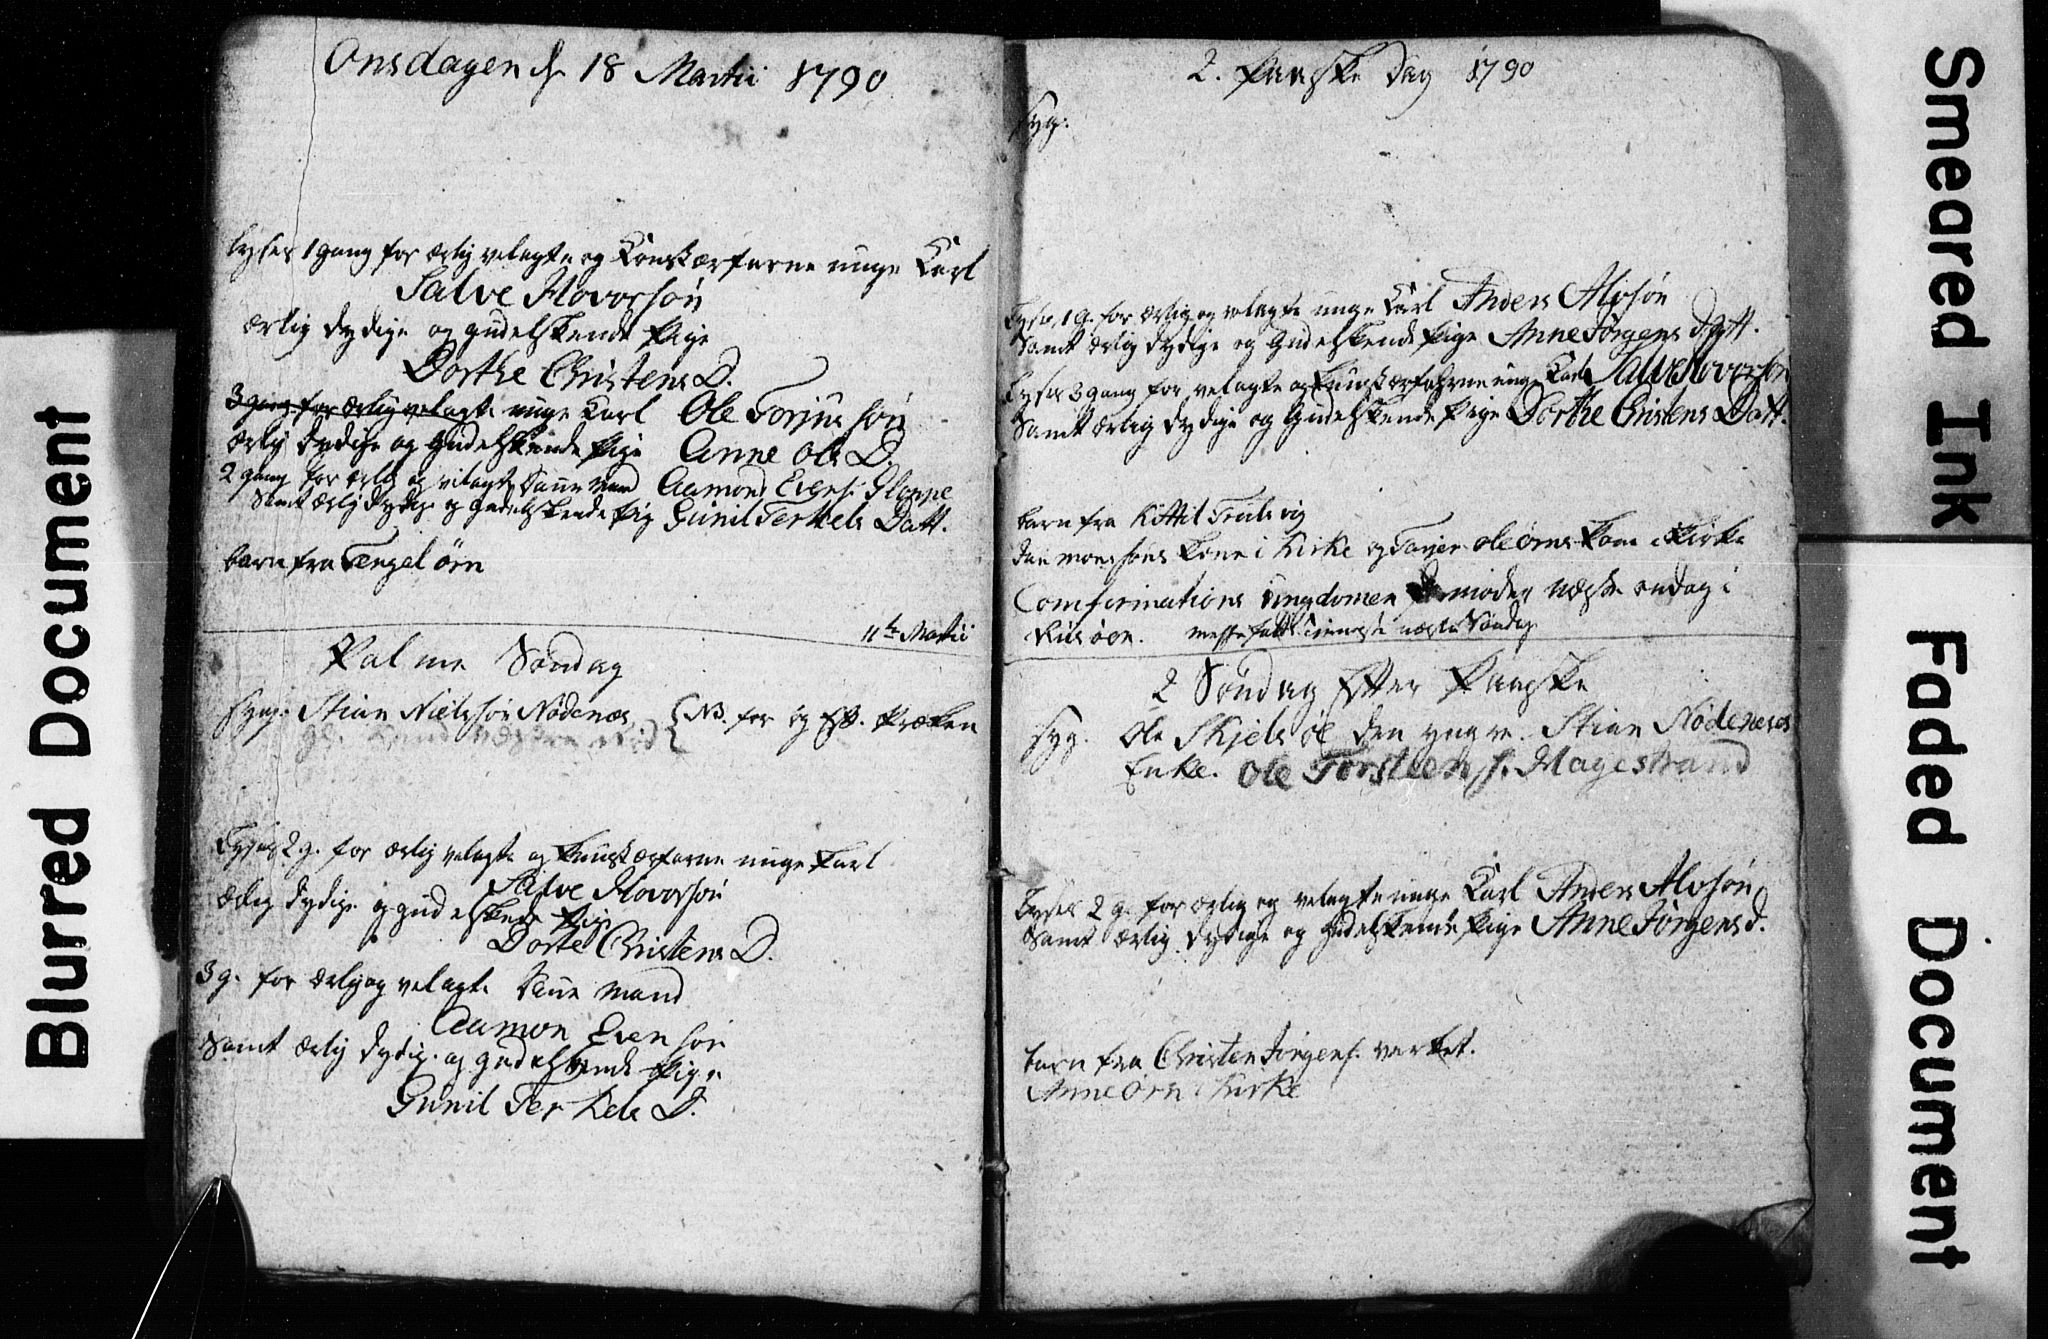 Onsdagen d. 18 Martii 1790
Lyses 1 gang for ærlig velagte og Konst ærfarne unge Karl
Salve Hovorsøn
ærlig dydige og gudelskende Pige
Dorthe Christens D.
3 gang for ærlig velagte unge Karl Ole Torjus søn
ærlig dydige og Gudelskende Pige Anne Ols D.
2 gang for ærlig og velagte Danne Mand Aamond Evens. Gloppe
Samt ærlig dydige og gudelskende Pig Gunil Terkels Datt.
barn fra Tengel øen
11te Martii
Palme Søndag
Syg. Stian Nielssøn Nødenæs { NB. for og Eft. Præken
Lyses 2 g. for ærlig velagte og Kunst ærfarne unge Karl
Salve Hovorsøn
ærlig dydige og gudelskende Pige
Dorte Christens D.
3 g. for ærlig og velagte Danne mand
Aamon Evensøn
Samt ærlig dydig. og gudelskende Pige
Gunil Terkels D.
2. Paaske Dag 1790
Syg:
Lyses 1 g. for ærlig og velagte unge Karl Anders Alvsøn
Samt ærlig dydige og Gudelskende Pige Anne Jørgens Datt.
Lyses 3 gang for velagte og Kunst ærfahrne unge Karl Salve Hovorsøn
Samt ærlig dydige og Gudelskende Pige Dorthe Christens Datt.
barn fra Kittil Trulsvig
Dan monssøns Kone i Kirke og Torjer Ole øens Kone i Kirke
Comfirmations ungdomen møder næste ondag i
Riisøen. Messefald næste Søndag
2 Søndag Efter Paaske
Syg. Ole Skjelsøe den yngre. Stian Nødenæses
Enke. Ole Torsteens. Hagestrand
Lyses 2 g. for ærlig og velagte unge Karl Anders Alvsøn
Samt ærlig dydige og Gudelskende Pige Anne Jørgens D.
barn fra Christen Jørgens. verket.
Anne Øen Kirke
Blurred Document
Smeared Ink
Faded Document